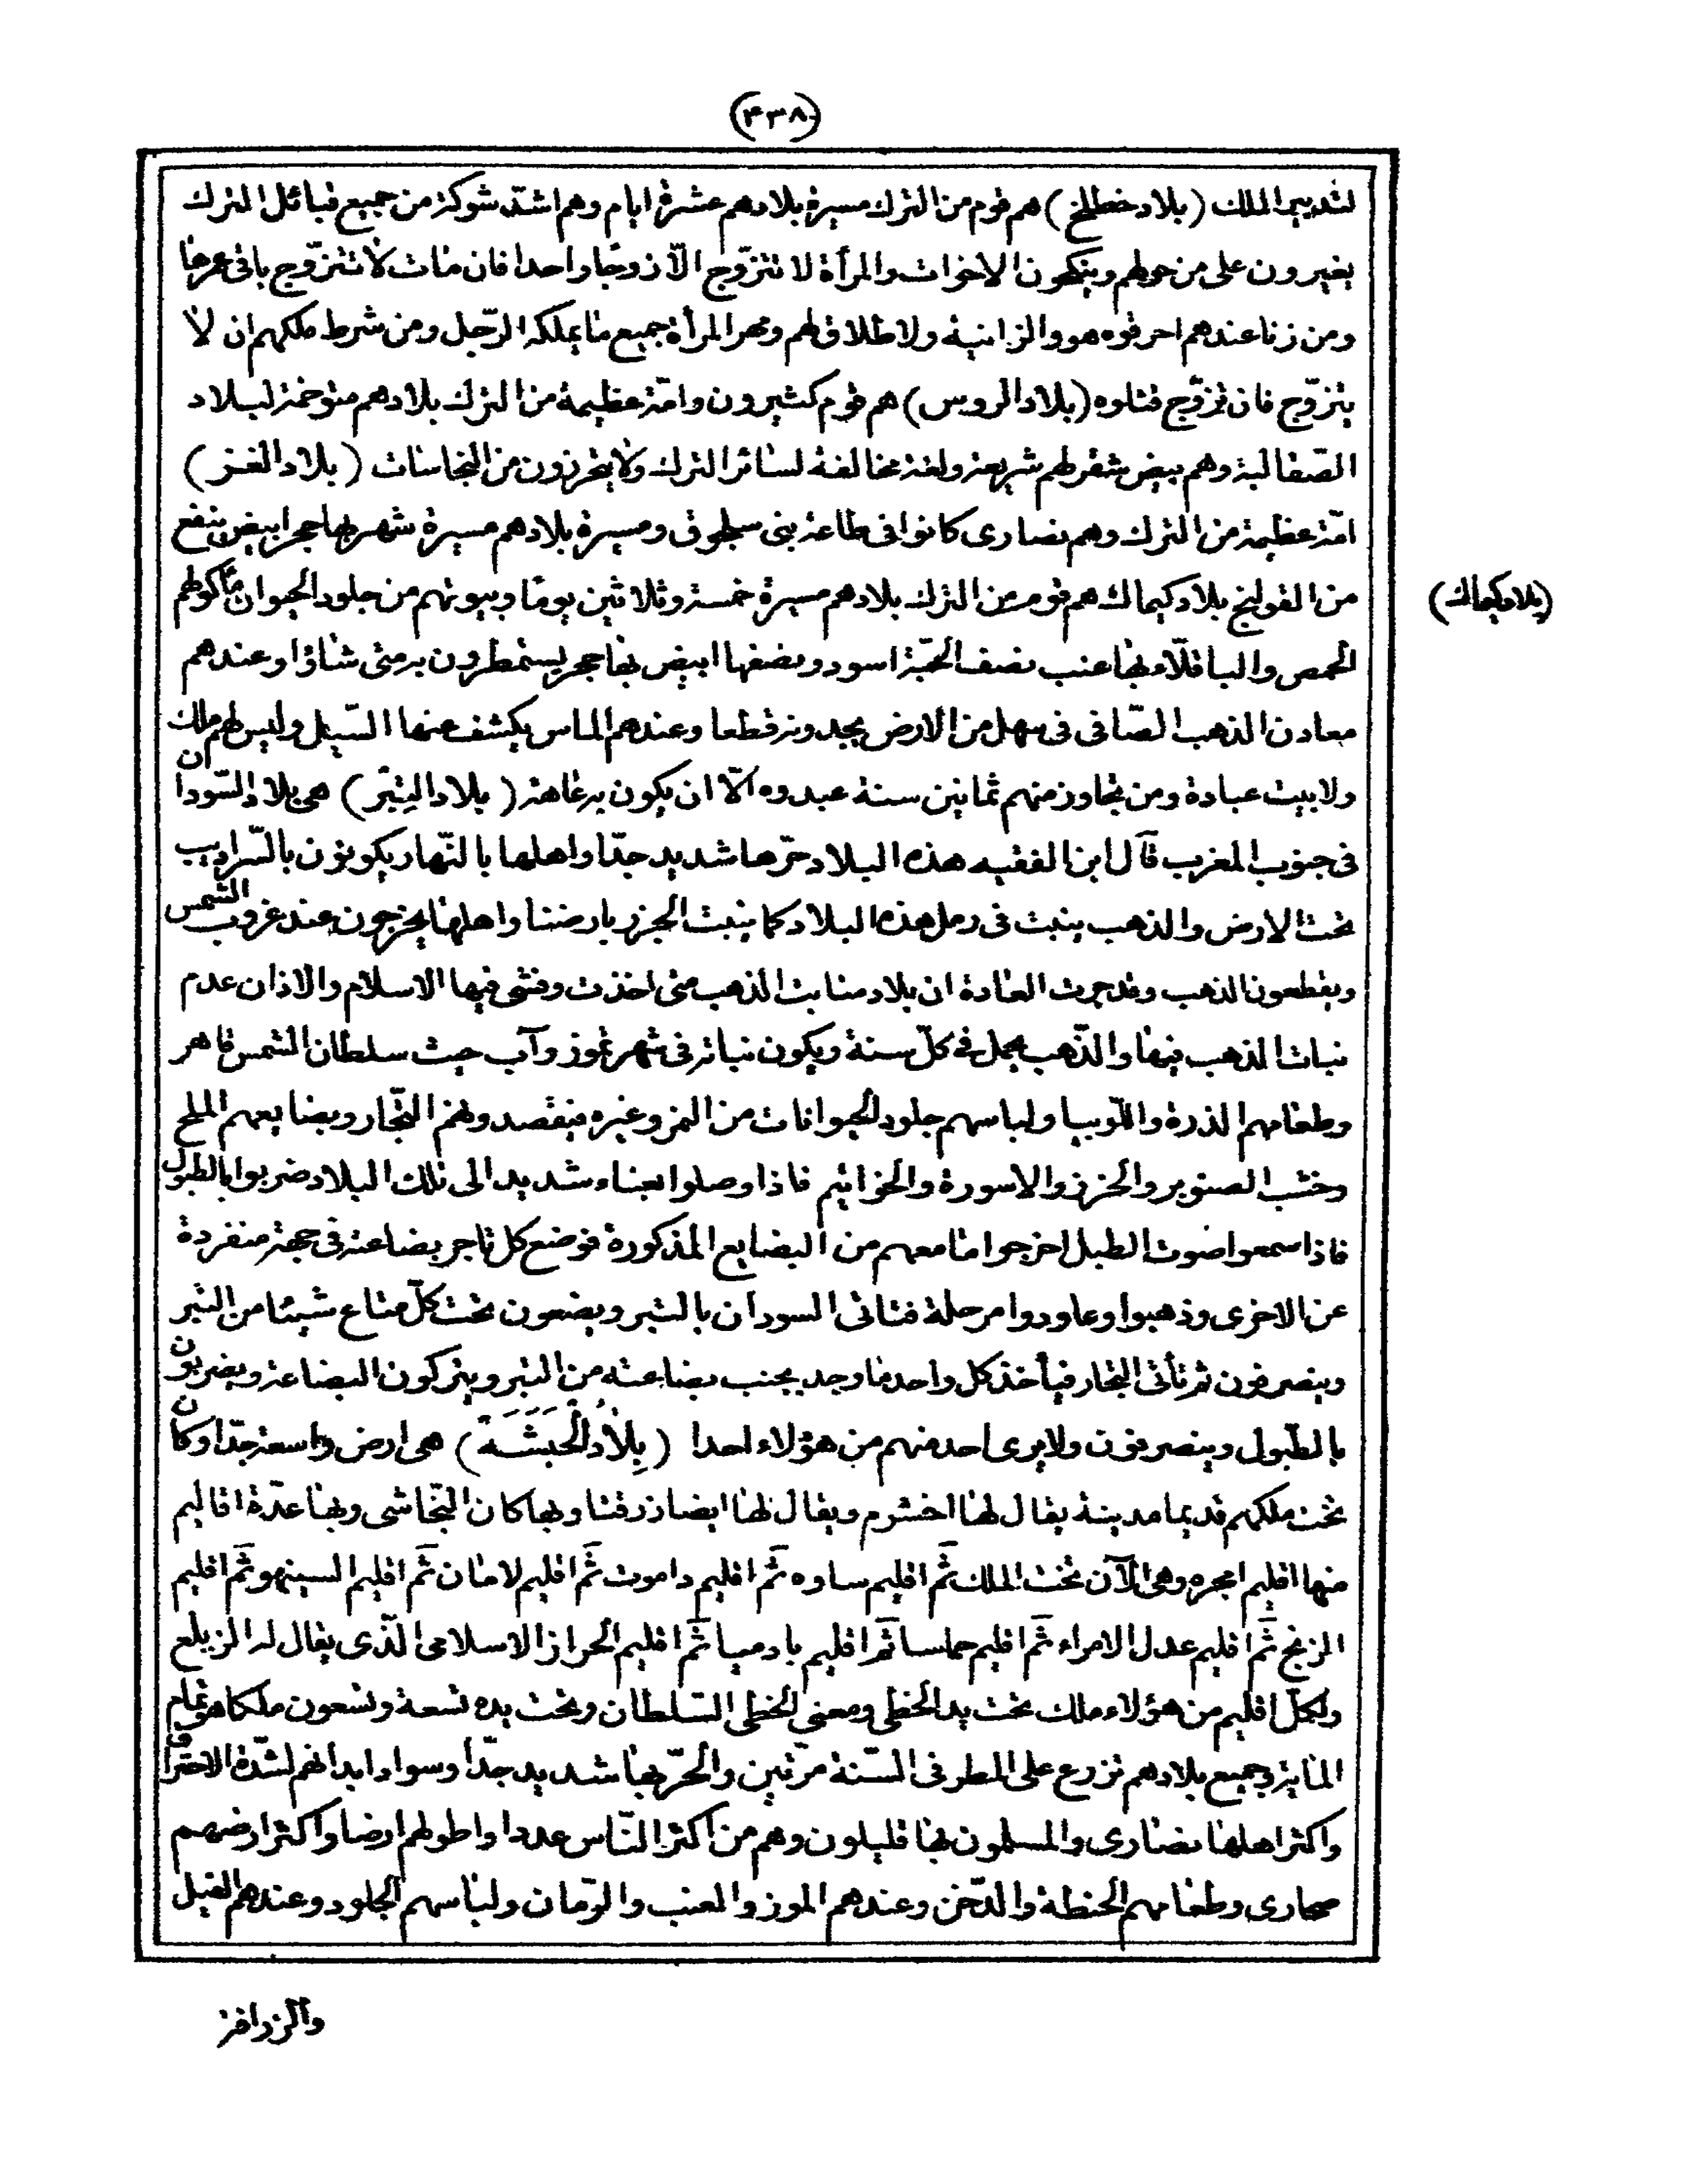 (۴۳۸)
لتدبير الملك (بلاد خطلخ) هم قوم من الترك مسيرة بلادهم عشرة ايام وهم اشدّ شوكة من جميع قبائل الترك
يغيرون على من حولهم وينكحون الاخوات والمرأة لا تتزوّج الّا زوجا واحدا فان مات لا تتزوّج باقى عمرها
ومن زنا عندهم احرقوه هو والزانية ولا طلاق لهم ومهر المرأة جميع ما يملكه الرّجل ومن شرط ملكهم ان لا
يتزوّج فان تزوّج قتلوه (بلاد الروس) هم قوم كثيرون وامّة عظيمة من الترك بلادهم متوخمة لبلاد
الصّقالبة وهم بيض شقر لهم شريعة ولغة مخالفة لسائر الترك ولا يتحرزون من النجاسات (بلاد الغز)
امّة عظيمة من الترك وهم نصارى كانوا فى طاعة بنى سلجوق ومسيرة بلادهم مسيرة شهر بها حجر ابيض ينفع
من القولنج بلاد كيماك هم قوم من الترك بلادهم مسيرة خمسة وثلاثين يوما وبيوتهم من جلود الحيوان مأكولهم
(بلاد كيماك)
الحمص والباقلّاء بها عنب نصف الحبّة اسود ونصفها ابيض بها حجر يستمطرون به متى شاؤا وعندهم
معادن الذهب الصّافى فى سهل من الارض يجدونه قطعا وعندهم الماس يكشف عنها السّيل وليس لهم ملك
ولا بيت عبادة ومن تجاوز منهم ثمانين سنة عبدوه الّا ان يكون به عاهة (بلاد التِبْر) هى بلاد السّودان
فى جنوب المغرب قال ابن الفقيه هذه البلاد حرّها شديد جدّا واهلها بالنّهار يكونون بالسّراديب
تحت الارض والذهب ينبت فى رمل هذه البلاد كما ينبت الجزر بارضنا واهلها يخرجون عند غروب الشمس
ويقطعون الذهب وقد جرت العادة ان بلاد منابت الذهب متى اخذت وفشى فيها الاسلام والاذان عدم
نبات الذهب فيها والذّهب يحمل فى كلّ سنة ويكون نباته فى شهر تموز وآب حيث سلطان الشمس قاهر
وطعامهم الذرة واللّوبيا ولباسهم جلود الحيوانات من النمر وغيره فيقصدونهم التّجار وبضايعهم الملح
وخشب الصنوبر والخرز والاسورة والخواتيم فاذا وصلوا بعناء شديد الى تلك البلاد ضربوا بالطبول
فاذا سمعوا صوت الطبل اخرجوا ما معهم من البضايع المذكورة فوضع كل تاجر بضاعته فى جهة منفردة
عن الاخرى وذهبوا وعاودوا مرحلة فتاتى السودان بالتبر ويضعون تحت كلّ متاع شيئا من التبر
وينصرفون ثم تأتى التجار فيأخذ كل واحد ما وجد بجنب بضاعته من التبر ويتركون البضاعة ويضربون
بالطّبول وينصرفون ولا يرى احد منهم من هؤلاء احدا (بِلَادُ الْحَبَشَة) هى ارض واسعة جدّا وكان
تحت ملكهم قديما مدينة يقال لها اخشرم ويقال لها ايضا زرفتا وبها كان النّجاشى وبها عدّة اقاليم
منها اقليم امجره وهى الآن تحت الملك ثم اقليم ساوه ثم اقليم داموت ثم اقليم لامان ثم اقليم السينهو ثم اقليم
الزنج ثم اقليم عدل الامراء ثم اقليم حماسا ثم اقليم بادميا ثم اقليم الحراز الاسلامى الّذى يقال له الزيلع
ولكلّ اقليم من هؤلاء ملك تحت يد الحطى ومعنى الحطى السّلطان وتحت يده تسعة وتسعون ملكا هو تمام
الماية وجميع بلادهم تزرع على المطر فى السّنة مرّتين والحرّ بها شديد جدّا وسواد ابدانهم لشدّة الاحتراق
واكثر اهلها نصارى والمسلمون بها قليلون وهم من اكثر النّاس عددا واطولهم ارضا واكثر ارضهم
صحارى وطعامهم الحنطة والدّخن وعندهم الموز والعنب والرّمان ولباسهم الجلود وعندهم الفيل
والزرافة